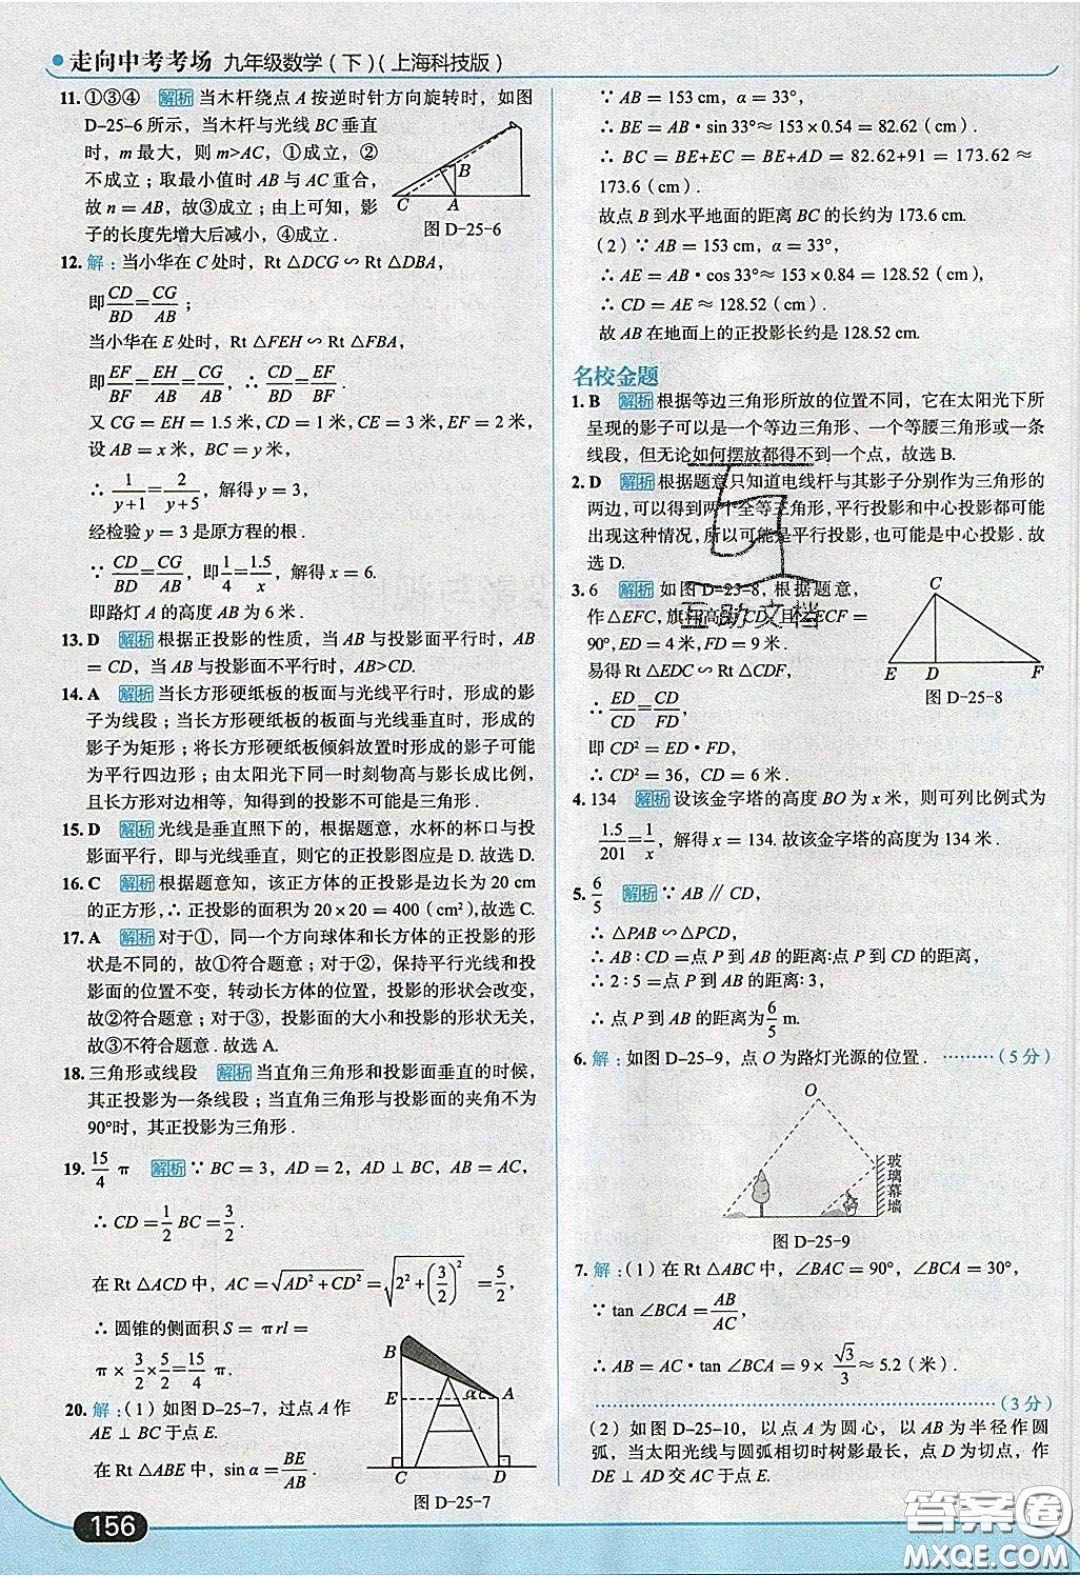 走向中考考场 九年级数学(下)(上海科技版)
11. ①③④ 解析 当木杆绕点 A 按逆时针方向旋转时,如图
D-25-6 所示,当木杆与光线 BC 垂直
时,m 最大,则 m>AC,①成立,②
不成立;取最小值时 AB 与 AC 重合,
故 n = AB,故③成立;由上可知,影
子的长度先增大后减小,④成立.
B
C A
图 D-25-6
12. 解:当小华在 C 处时,Rt △DCG ∽ Rt △DBA,
即 CD/BD = CG/AB ;
当小华在 E 处时,Rt △FEH ∽ Rt △FBA,
即 EF/BF = EH/AB = CG/AB ,∴ CD/BD = EF/BF .
又 CG = EH = 1.5 米,CD = 1 米,CE = 3 米,EF = 2 米,
设 AB = x 米,BC = y 米,
∴ 1/(y+1) = 2/(y+5) ,解得 y = 3,
经检验 y = 3 是原方程的根.
∵ CD/BD = CG/AB ,即 1/4 = 1.5/x ,解得 x = 6.
即路灯 A 的高度 AB 为 6 米.
13. D 解析 根据正投影的性质,当 AB 与投影面平行时,AB
= CD,当 AB 与投影面不平行时,AB>CD.
14. A 解析 当长方形硬纸板的板面与光线平行时,形成的影
子为线段;当长方形硬纸板的板面与光线垂直时,形成的
影子为矩形;将长方形硬纸板倾斜放置时形成的影子可能
为平行四边形;由太阳光下同一时刻物高与影长成比例,
且长方形对边相等,知得到的投影不可能是三角形.
15. D 解析 光线是垂直照下的,根据题意,水杯的杯口与投
影面平行,即与光线垂直,则它的正投影图应是 D. 故选 D.
16. C 解析 根据题意知,该正方体的正投影是边长为 20 cm
的正方形,∴ 正投影的面积为 20 × 20 = 400(cm²),故选 C.
17. A 解析 对于①,同一个方向球体和长方体的正投影的形
状是不同的,故①符合题意;对于②,保持平行光线和投
影面的位置不变,转动长方体的位置,投影的形状会改变,
故②符合题意;对于③,投影面的大小和投影的形状无关,
故③不符合题意.故选 A.
18. 三角形或线段 解析 当直角三角形和投影面垂直的时候,
其正投影为一条线段;当直角三角形与投影面的夹角不为
90°时,其正投影为三角形.
19. 15/4 π 解析 ∵ BC = 3,AD = 2,AD ⊥ BC,AB = AC,
∴ CD = 1/2 BC = 3/2 .
在 Rt △ACD 中,AC = √(AD² + CD²) = √(2² + (3/2)²) = 5/2 ,
∴ 圆锥的侧面积 S = πrl =
π × 3/2 × 5/2 = 15/4 π .
20. 解:(1)如图 D-25-7,过点 A 作
AE ⊥ BC 于点 E.
在 Rt △ABE 中,sin α = BE/AB .
B
E α A
C D
图 D-25-7
156
∵ AB = 153 cm,α = 33°,
∴ BE = AB · sin 33° ≈ 153 × 0.54 = 82.62(cm).
∴ BC = BE+EC = BE+AD = 82.62+91 = 173.62 ≈
173.6(cm).
故点 B 到水平地面的距离 BC 的长约为 173.6 cm.
(2)∵ AB = 153 cm,α = 33°,
∴ AE = AB · cos 33° ≈ 153 × 0.84 = 128.52(cm),
∴ CD = AE ≈ 128.52(cm).
故 AB 在地面上的正投影长约是 128.52 cm.
名校金题
1. B 解析 根据等边三角形所放的位置不同,它在太阳光下所
呈现的影子可以是一个等边三角形、一个等腰三角形或一条
线段,但无论如何摆放都得不到一个点,故选 B.
2. D 解析 根据题意只知道电线杆与其影子分别作为三角形的
两边,可以得到两个全等三角形,平行投影和中心投影都可能
出现这种情况,所以可能是平行投影,也可能是中心投影.故
选 D.
3. 6 解析 如图 D-25-8,根据题意,
作 △EFC,旗杆高度 CD,且 ∠ECF =
90°,ED = 4 米,FD = 9 米.
易得 Rt △EDC ∽ Rt △CDF,
∴ ED/CD = CD/FD ,
即 CD² = ED · FD,
∴ CD² = 36,CD = 6 米.
C
E D F
图 D-25-8
互助文档
4. 134 解析 设该金字塔的高度 BO 为 x 米,则可列比例式为
1.5/201 = 1/x ,解得 x = 134. 故该金字塔的高度为 134 米.
5. 6/5 解析 ∵ AB ∥ CD,
∴ △PAB ∽ △PCD,
∴ AB∶CD = 点 P 到 AB 的距离∶点 P 到 CD 的距离,
∴ 2∶5 = 点 P 到 AB 的距离∶3,
∴ 点 P 到 AB 的距离为 6/5 m.
6. 解:如图 D-25-9,点 O 为路灯光源的位置. ………(5 分)
O
玻璃幕墙
图 D-25-9
7. 解:(1)在 Rt △ABC 中,∠BAC = 90°,∠BCA = 30°,
∵ tan ∠BCA = AB/AC ,
∴ AB = AC · tan ∠BCA = 9 × √3/3 ≈ 5.2(米).
……………………(3 分)
(2)如图 D-25-10,以点 A 为圆心,以 AB 为半径作圆
弧,当太阳光线与圆弧相切时树影最长,点 D 为切点,作
DE ⊥ AD 交 AC 于点 E.
答案圈
MXQE.COM